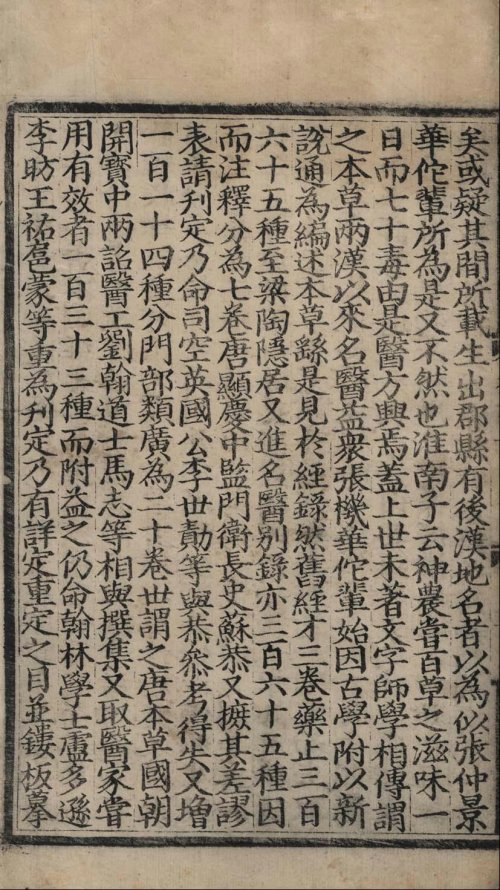 矣或疑其間所載生出郡縣有後漢地名者以為似張仲景
華佗輩所為是又不然也淮南子云神農嘗百草之滋味一
日而七十毒由是醫方興焉蓋上世未著文字師學相傳謂
之本草兩漢以來名醫益衆張機華佗輩始因古學附以新
說通為編述本草繇是見於經錄然舊經才三卷藥止三百
六十五種至梁陶隱居又進名醫別錄亦三百六十五種因
而注釋分為七卷唐顯慶中監門衛長史蘇恭又摭其差謬
表請刊定乃命司空英國公李世勣等與恭參考得失又增
一百一十四種分門部類廣為二十卷世謂之唐本草國朝
開寶中兩詔醫工劉翰道士馬志等相與撰集又取醫家嘗
用有效者一百三十三種而附益之仍命翰林學士盧多遜
李昉王祐扈蒙等重為刊定乃有詳定重定之目並鏤板摹